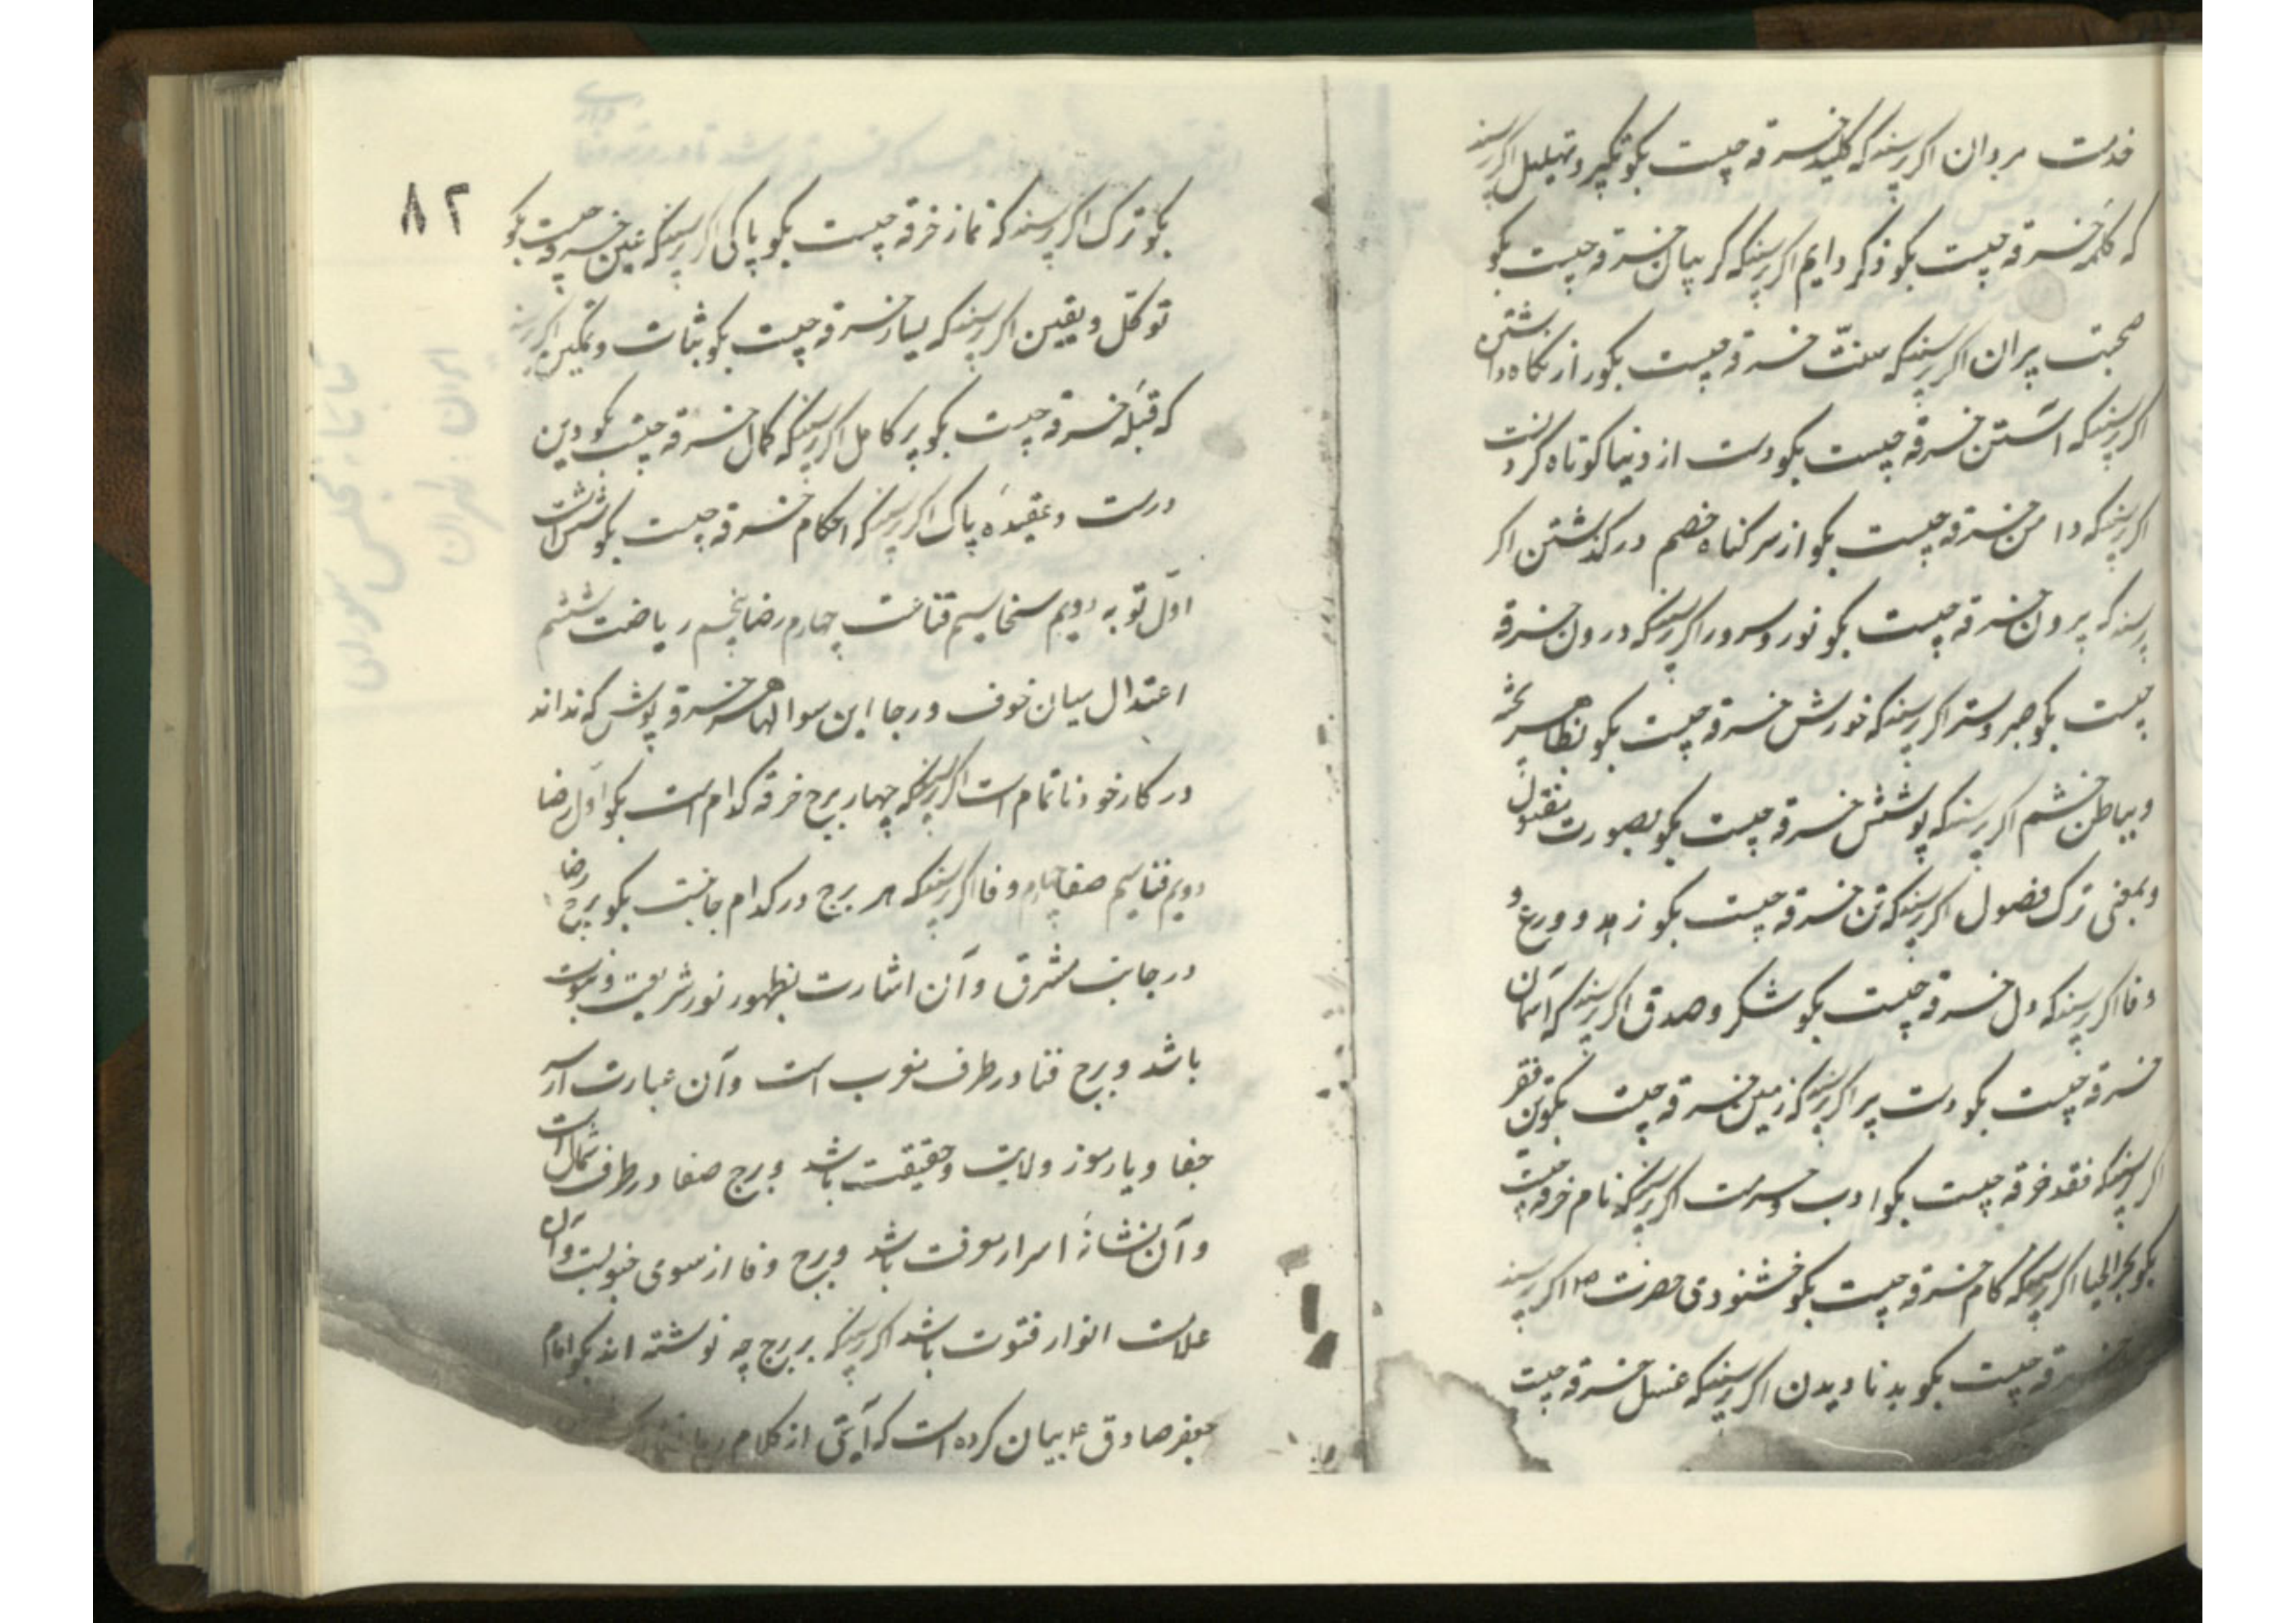 خدمت مردان اگر پرسند که کلید خرقه چیست بکو تکبیر و تهلیل اگر پرسند
که کلمهٔ خرقه چیست بکو ذکر دایم اگر پرسند که گریبان خرقه چیست بکو
صحبت پیران اگر پرسند که سنّت خرقه چیست بکو راز نکاه داشتن
اگر پرسند که آستین خرقه چیست بکو دست از دنیا کوتاه کردنست
اگر پرسند که دامن خرقه چیست بکو از سر کناه خصم در کذشتن اگر
پرسند که بیرون خرقه چیست بکو نور و سرور اگر پرسند که درون خرقه
چیست بکو صبر و ستر اگر پرسند که خورش خرقه چیست بکو بظاهر
و بباطن خشم اگر پرسند که پوشش خرقه چیست بکو بصورت
و بمعنی ترک فضول اگر پرسند که تن خرقه چیست بکو زهد و ورع و
وفا اگر پرسند که دل خرقه چیست بکو شکر و صدق اگر پرسند که آسمان
خرقه چیست بکو دست پیر اگر پرسند که زمین خرقه چیست بکو تن فقر
اگر پرسند که نقد خرقه چیست بکو ادب و حرمت اگر پرسند که نام خرقه چیست
بکو بحر الحیا اگر پرسند که کام خرقه چیست بکو خشنودی حضرت ص اگر پرسند
خرقه چیست بکو بد نادیدن اگر پرسند که غسل خرقه چیست
٨٢
بکو ترک اگر پرسند که نماز خرقه چیست بکو پاکی اگر پرسند که عین خرقه چیست بکو
توکّل و یقین اگر پرسند که یسار خرقه چیست بکو ثبات و تمکین اگر پرسند
که قبلهٔ خرقه چیست بکو پیر کامل اگر پرسند که کمال خرقه چیست بکو دین
درست و عقیدهٔ پاک اگر پرسند که احکام خرقه چیست بکو شش است
اوّل توبه دویم سخا سیم قناعت چهارم رضا پنجم ریاضت ششم
اعتدال میان خوف و رجا این سوالها هر خرقه پوش که نداند
در کار خود ناتمام است اگر پرسند که چهار برج خرقه کدام است بکو اوّل رضا
دویم فنا سیم صفا چهارم وفا اگر پرسند که هر برج در کدام جانبست بکو برج رضا
در جانب مشرق و آن اشارت بظهور نور شریعت و نبوت
باشد و برج فنا در طرف مغرب است و آن عبارت از سر
خفا و یا رموز ولایت و حقیقت باشد و برج صفا در طرف شمال است
و آن نشانهٔ اسرار معرفت باشد و برج وفا از سوی جنوبست و آن
علامت انوار فتوت باشد اگر پرسند که بر برج چه نوشته اند بکو امام
جعفر صادق ع بیان کرده است که آیتی از کلام